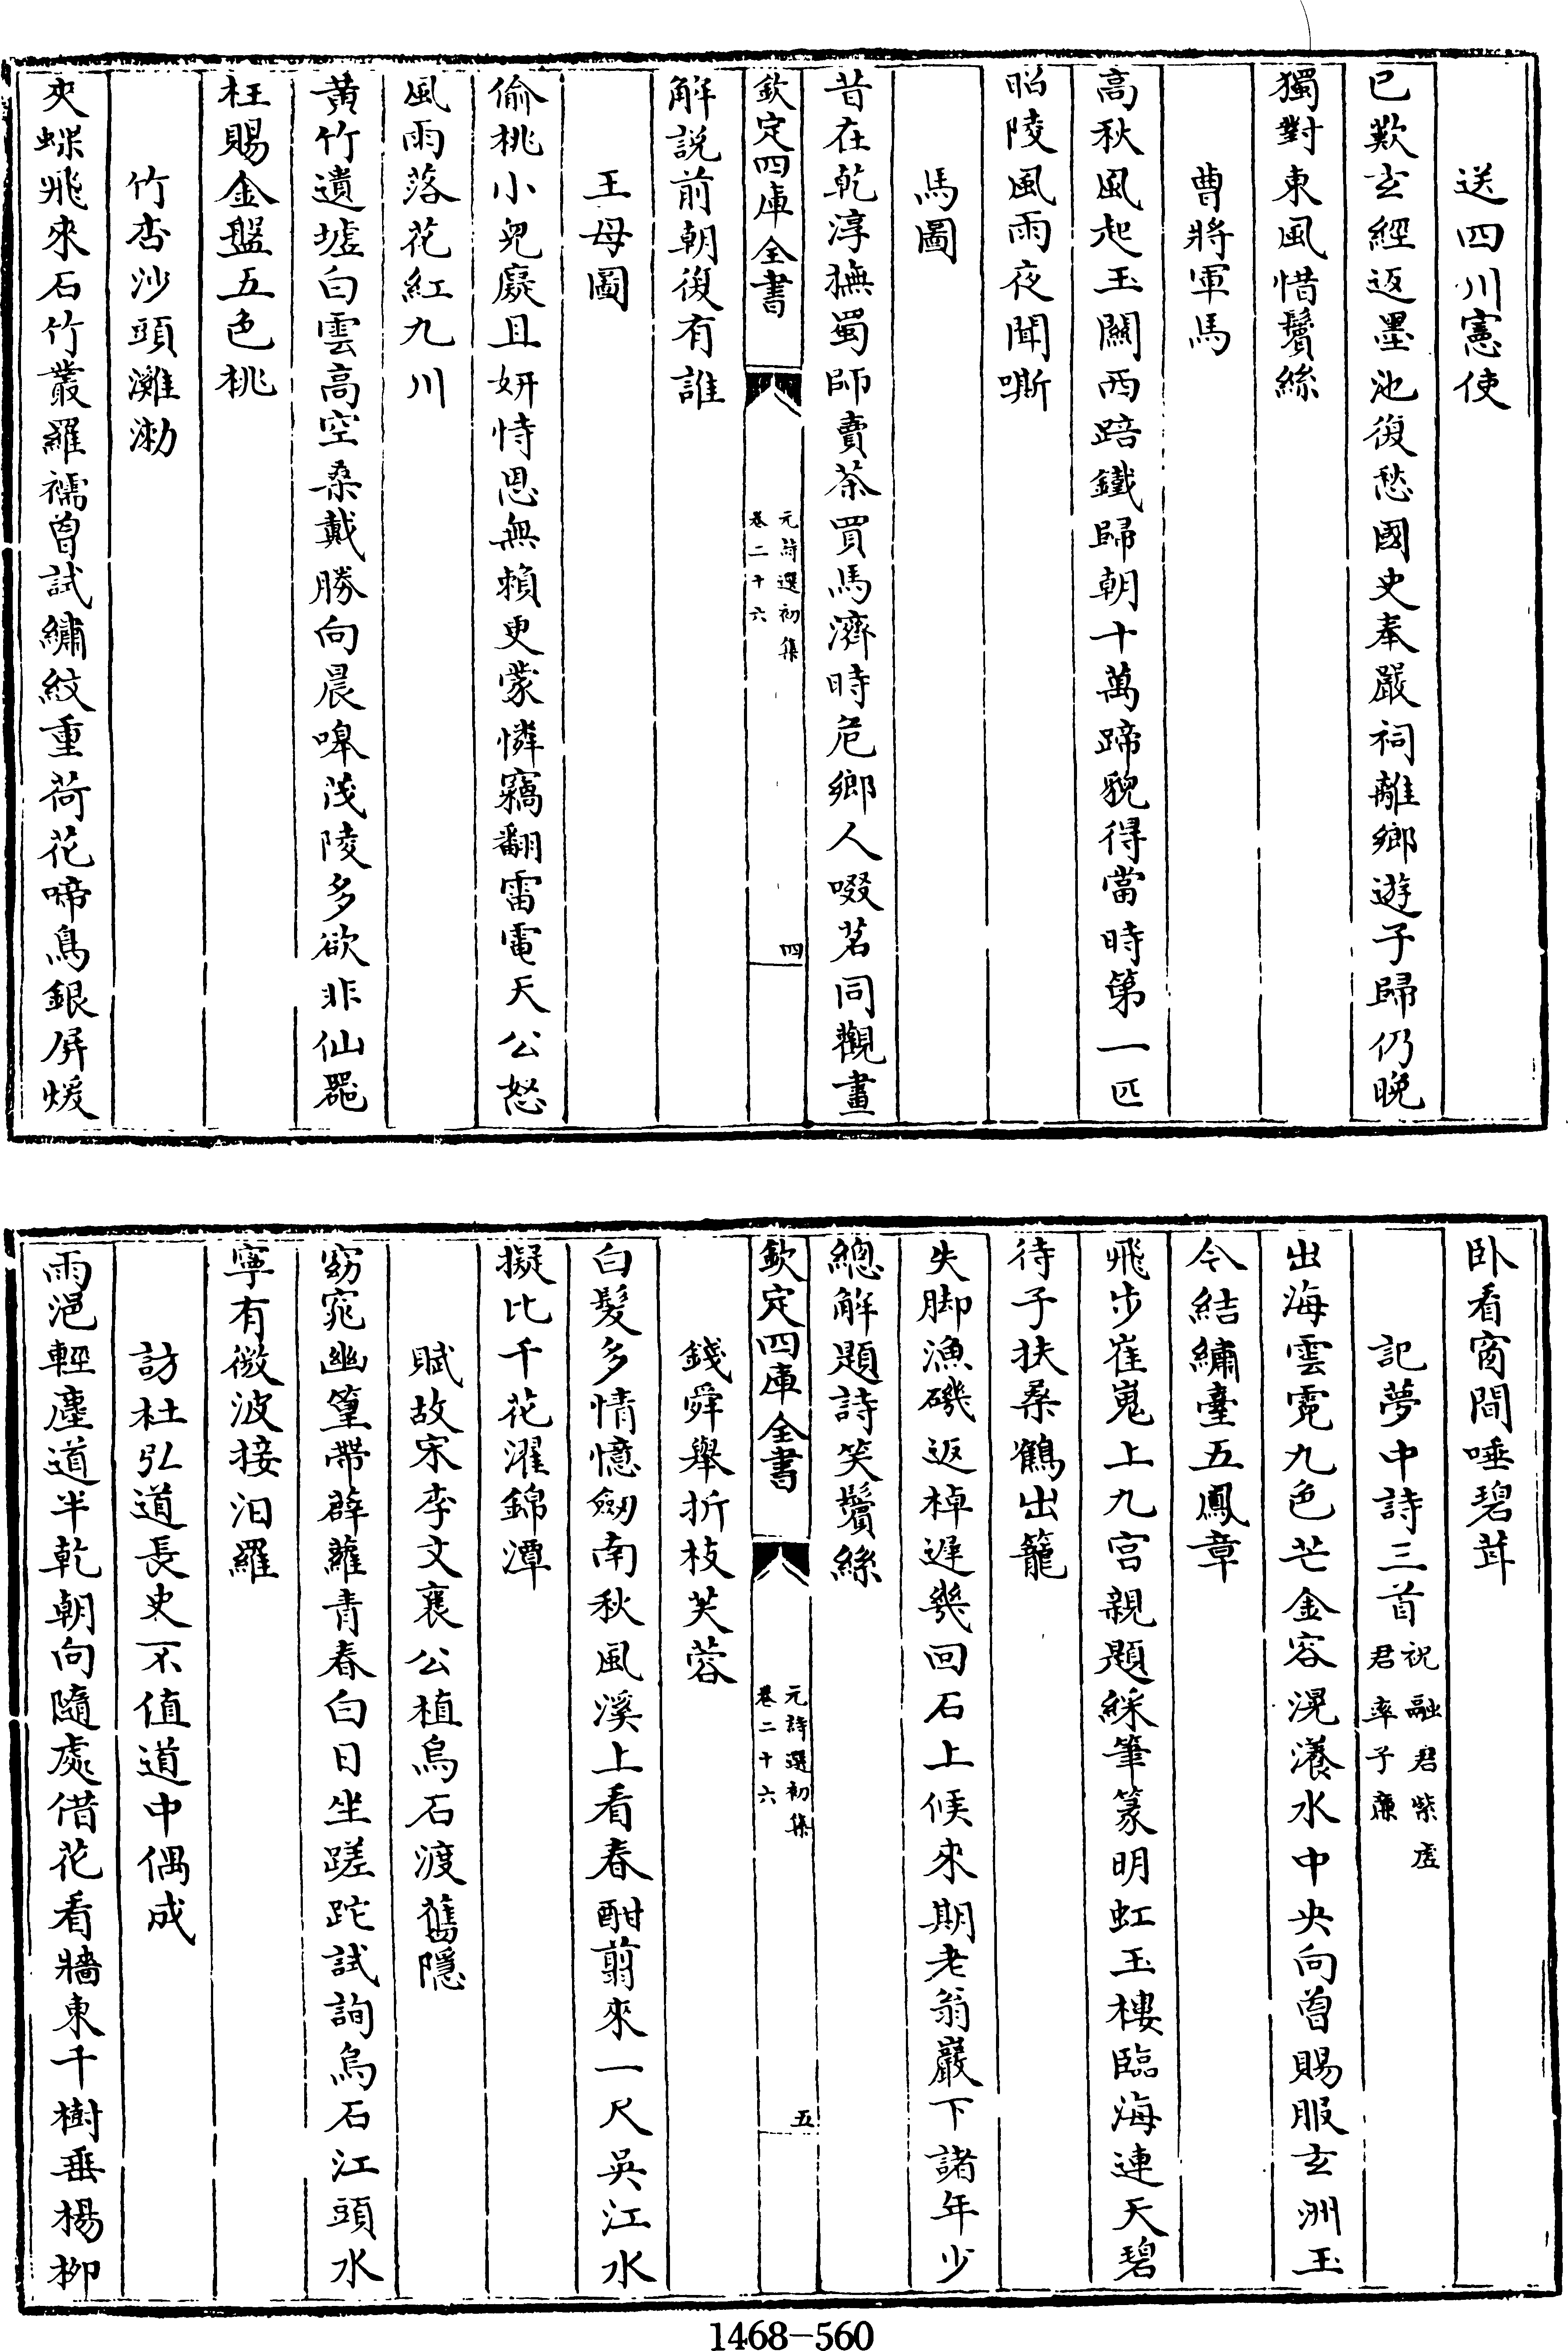 送四川憲使
已歎玄經返墨池復愁國史奉嚴祠離鄉遊子歸仍晚
獨對東風惜鬢絲
曹將軍馬
高秋風起玉關西踣鐵歸朝十萬蹄貌得當時第一匹
昭陵風雨夜聞嘶
馬圖
昔在乾淳撫蜀師賣茶買馬濟時危鄉人啜茗同觀畫
欽定四庫全書
元詩選初集
卷二十六
四
解說前朝復有誰
王母圖
偷桃小兒癡且妍恃恩無賴更蒙憐竊翻雷電天公怒
風雨落花紅九川
黄竹遺墟白雲高空桑戴勝向晨嘷茂陵多欲非仙器
枉賜金盤五色桃
竹杏沙頭㶉𪆟
夾蝶飛來石竹叢羅襦曾試繡紋重荷花啼鳥銀屏煖
卧看窗間唾碧茸
記夢中詩三首祝融君紫虛
君率子廉
出海雲霓九色芒金容滉瀁水中央向曾賜服玄洲玉
今結繡臺五鳳章
飛步崔嵬上九宮親題綵筆篆明虹玉樓臨海連天碧
待子扶桑鶴出籠
失脚漁磯返棹遲幾回石上候來期老翁巖下諸年少
總解題詩笑鬢絲
欽定四庫全書
元詩選初集
卷二十六
五
錢舜舉折枝芙蓉
白髮多情憶劒南秋風溪上看春酣翦來一尺吳江水
擬比千花濯錦潭
賦故宋李文襄公植烏石渡舊隱
窈窕幽篁帶薜蘿青春白日坐蹉跎試詢烏石江頭水
寧有微波接汨羅
訪杜弘道長史不值道中偶成
雨浥輕塵道半乾朝向隨處借花看牆東千樹垂楊柳
1468-560